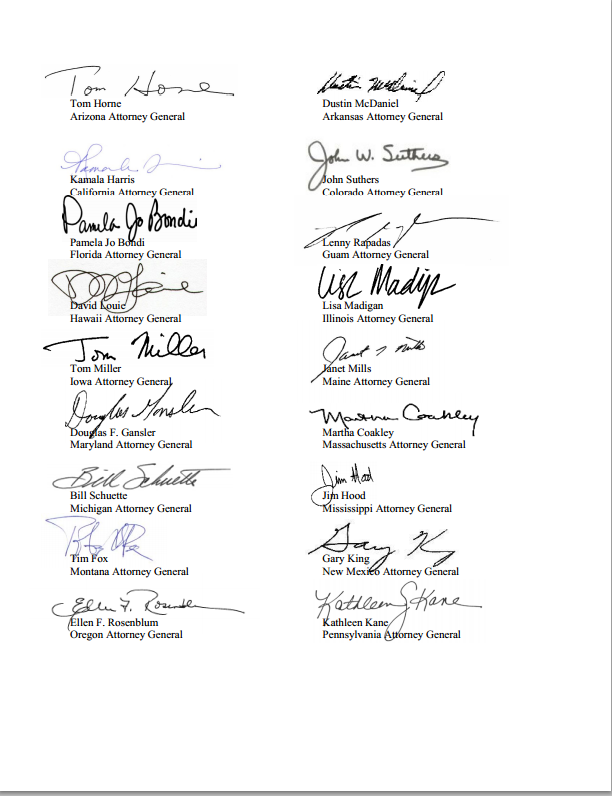 Tom Horne
Tom Horne
Arizona Attorney General
Dustin McDaniel
Dustin McDaniel
Arkansas Attorney General
Kamala
Kamala Harris
California Attorney General
John W. Suthers
John Suthers
Colorado Attorney General
Pamela Jo Bondi
Pamela Jo Bondi
Florida Attorney General
Lenny Rapadas
Guam Attorney General
David Louie
Hawaii Attorney General
Lisa Madigan
Lisa Madigan
Illinois Attorney General
Tom Miller
Tom Miller
Iowa Attorney General
Janet T Mills
Janet Mills
Maine Attorney General
Douglas Gansler
Douglas F. Gansler
Maryland Attorney General
Martha Coakley
Martha Coakley
Massachusetts Attorney General
Bill Schuette
Bill Schuette
Michigan Attorney General
Jim Hood
Jim Hood
Mississippi Attorney General
Tim Fox
Montana Attorney General
Gary K
Gary King
New Mexico Attorney General
Ellen F. Rosenblum
Ellen F. Rosenblum
Oregon Attorney General
Kathleen G. Kane
Kathleen Kane
Pennsylvania Attorney General